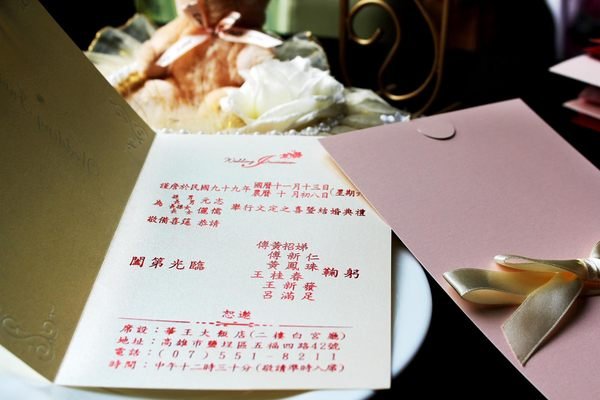 Wedding Invitation
謹詹於民國九十九年 國曆十一月十三日
農曆 十 月初八日 (星期六
為 長男 元志
儷儒 舉行文定之喜暨結婚典禮
敬備喜筵 恭請
闔第光臨
傅黃招娣
傅新仁
黃鳳珠
王桂春
王新發
呂滿足
鞠躬
恕邀
席設：華王大飯店(二樓白宮廳)
地址：高雄市鹽埕區五福四路42號
電話：(07)551-8211
時間：中午十二時三十分(敬請準時入席)